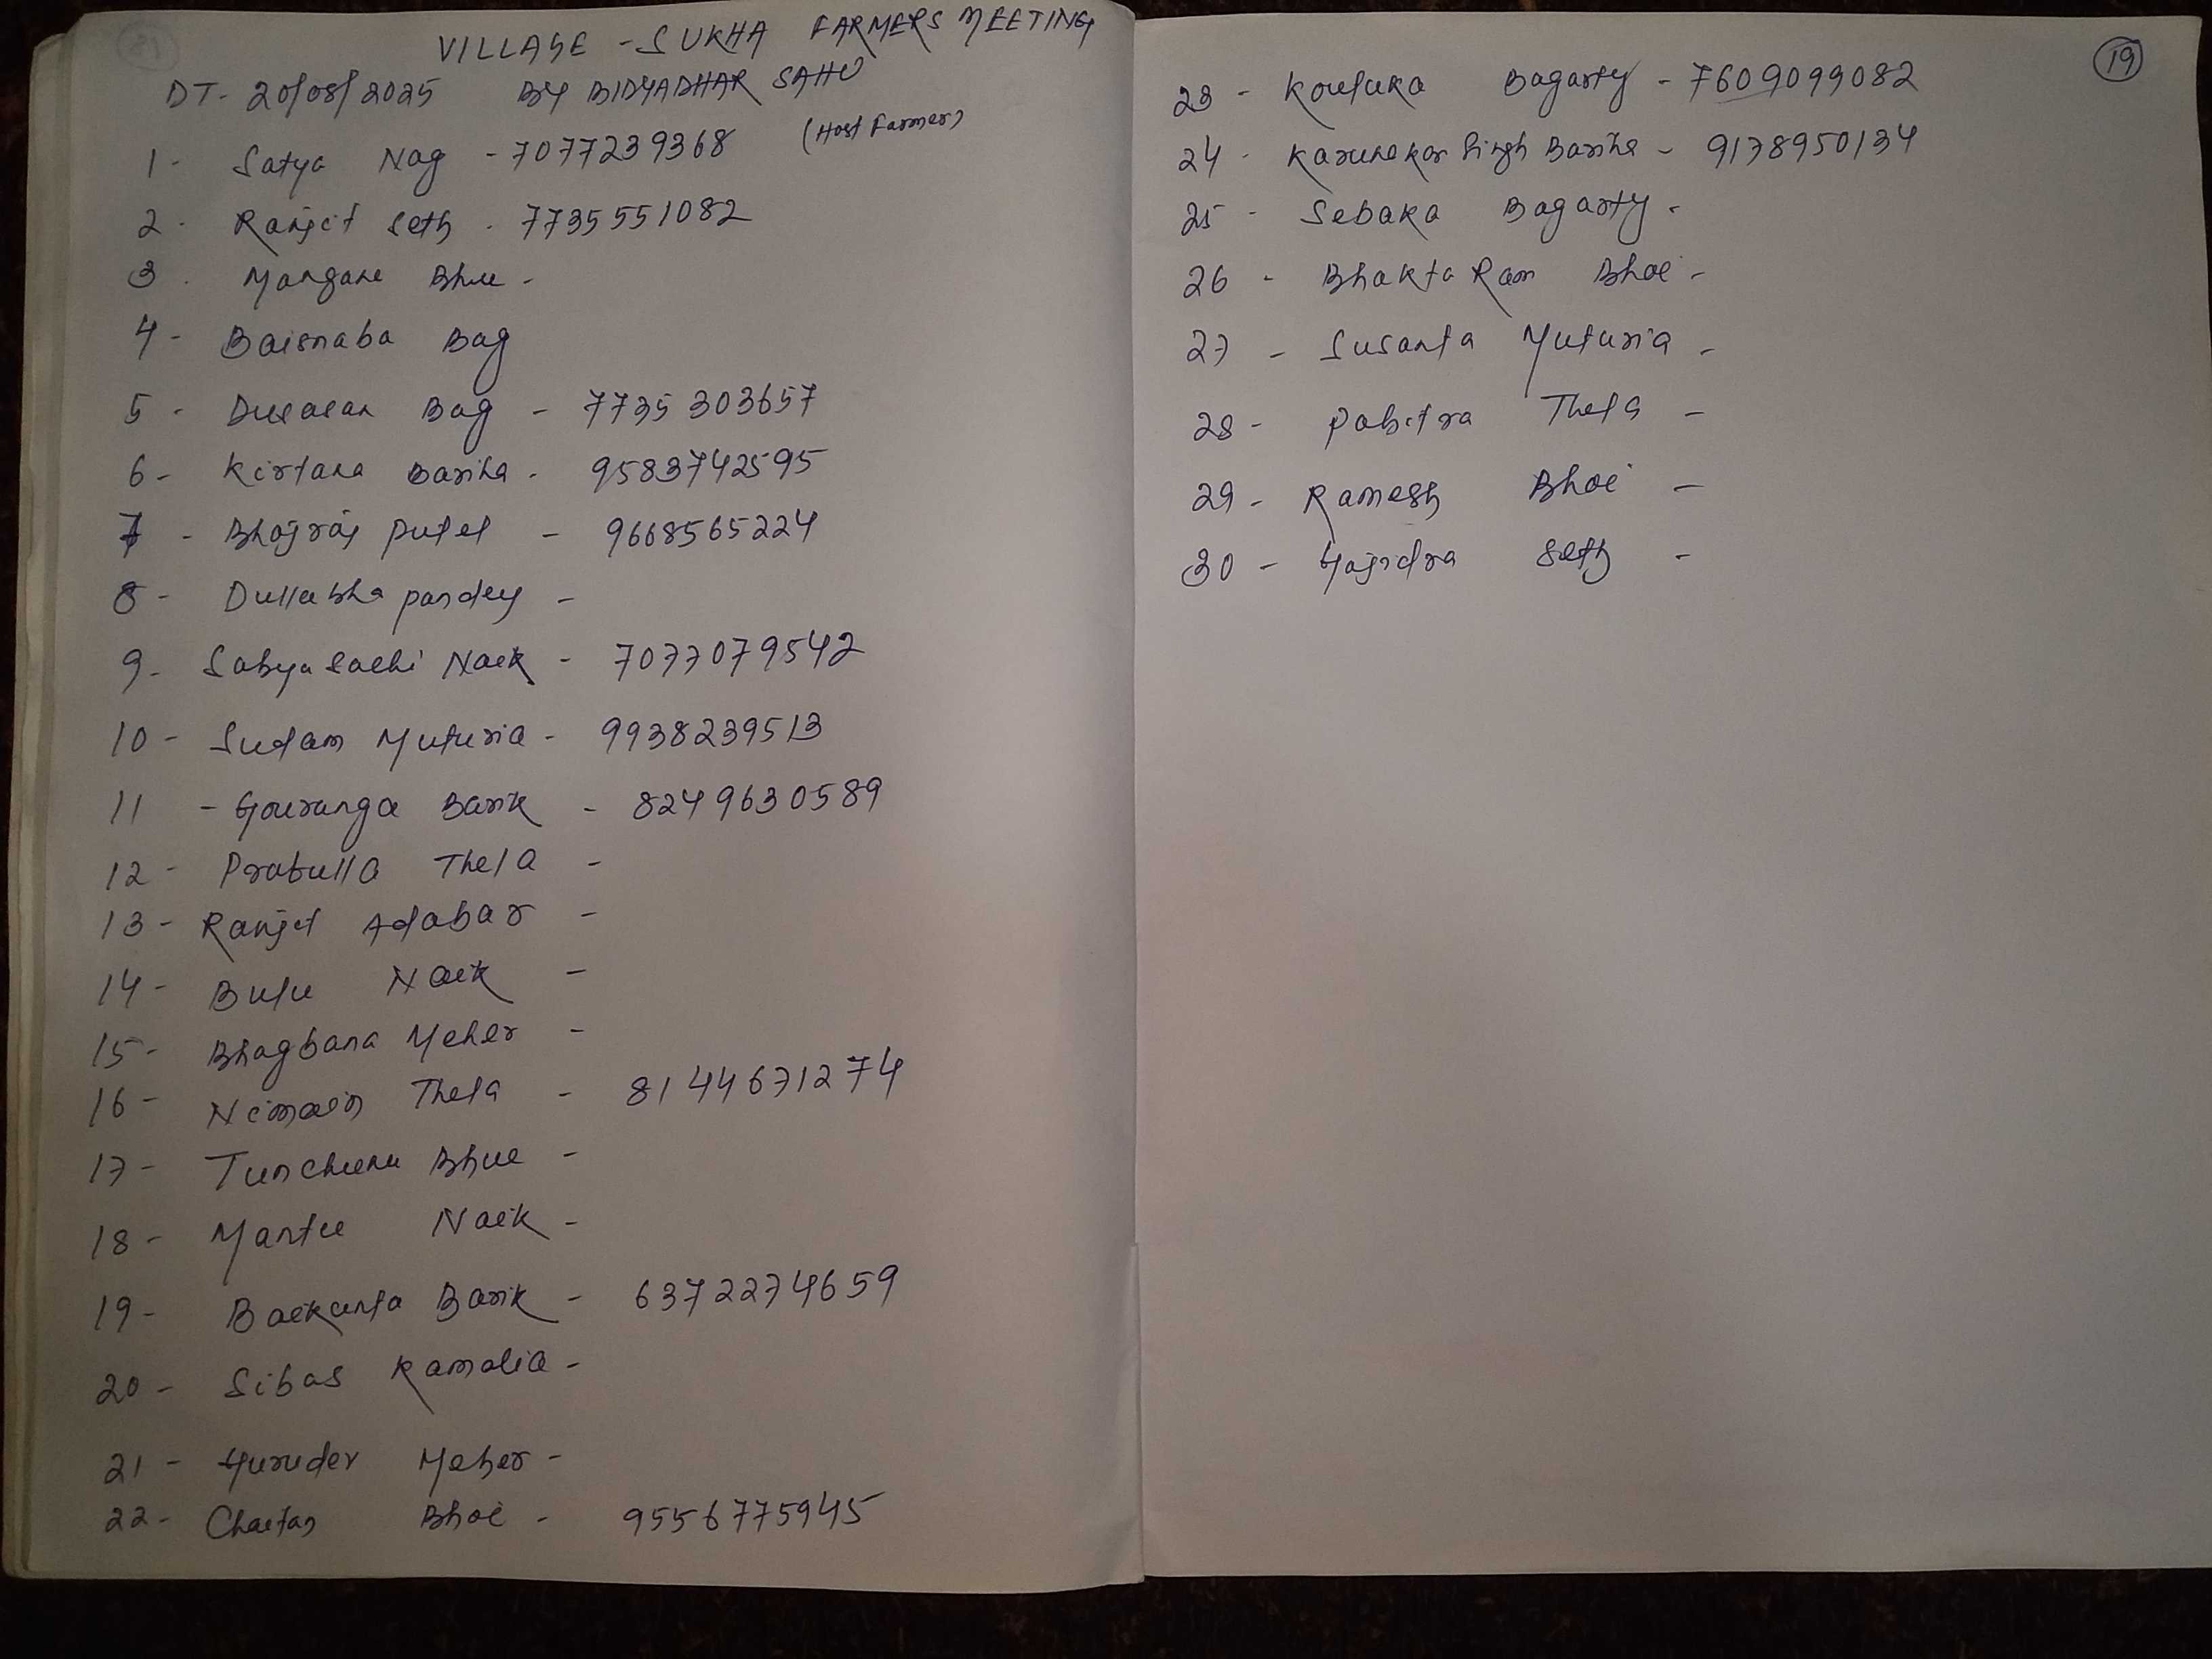 VILLAGE - SUKHA FARMERS MEETING
DT- 20/08/2025 BY BIDYADHAR SAHU
(Host Farmer)
1- Satya Nag - 7077239368
2- Ranjit Seth - 7735551082
3- Mangane Bhue -
4- Baisnaba Bag
5- Dusasan Bag - 7735303657
6- Kirtana Bariha - 9583742595
7- Bhojraj Putel - 9668565224
8- Dullabha pandey -
9- Sabyasachi Naik - 7077079542
10- Sudam Muturia - 9938239513
11 - Gouranga Barik - 8249630589
12- Prabulla Thela -
13- Ranjit Adabar -
14- Bulu Naik -
15- Bhagbana Meher -
16- Nimain Thela - 8144671274
17- Tunchunu Bhue -
18- Mantu Naik -
19- Baikunta Barik - 6372274659
20- Sibas Kamalia -
21- Gurudev Meher -
22- Chaitan Bhoi - 9556775945
19
23 - Koutuka Bagarty - 7609099082
24 - Karunakar Singh Bariha - 9178950134
25 - Sebaka Bagarty -
26 - Bhakta Ram Bhoi -
27 - Susanta Muturia -
28 - Pabitra Thela -
29 - Ramesh Bhoi -
30 - Gajidra Seth -